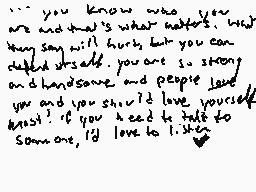 ... you know who you
are and that's what matters. what
they say will hurt, but you can
defend urself. you are so strong
and handsome and people love
you and you should love yourself
most! if you need to talk to
someone, I'd love to listen